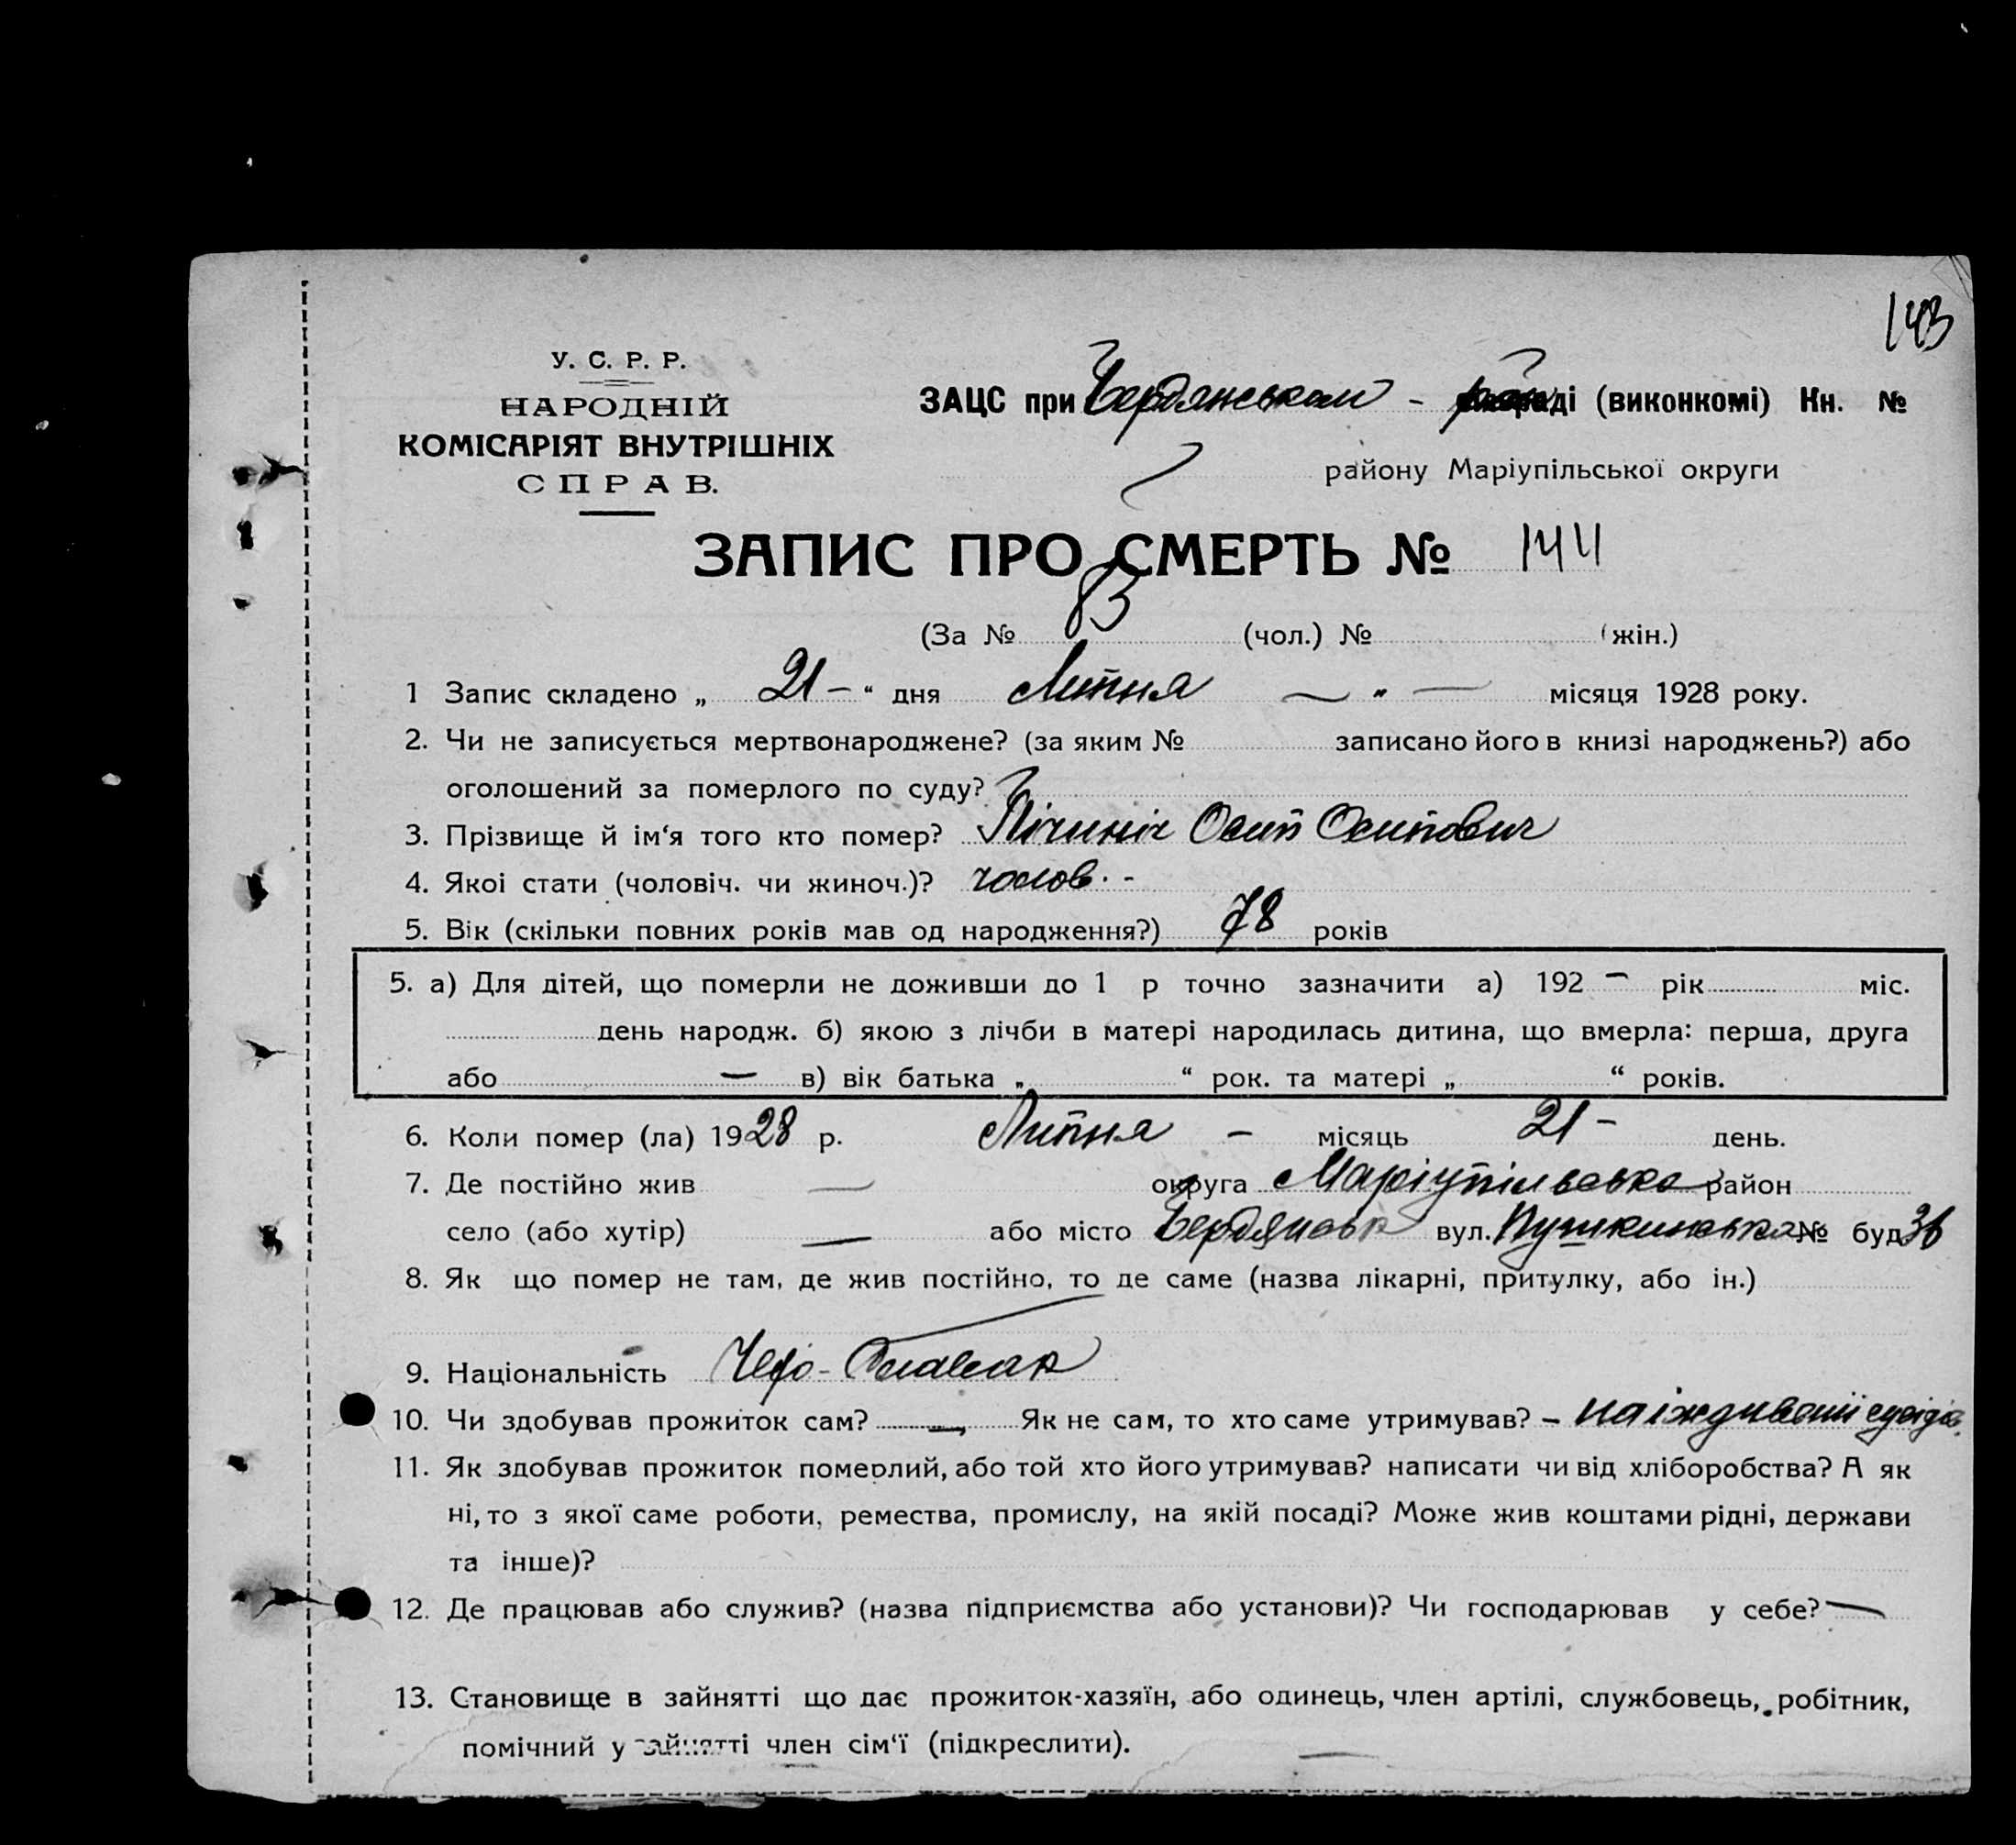 143
У. С. Р. Р.
НАРОДНІЙ
КОМІСАРІЯТ ВНУТРІШНІХ
СПРАВ.
ЗАЦС при Бердянськом - раді (виконкомі) Кн. №
району Маріупільської округи
ЗАПИС ПРО СМЕРТЬ № 144
(За № 83 (чол.) № (жін.)
1 Запис складено „ 21 – “ дня Липня — „ — місяця 1928 року.
2. Чи не записується мертвонароджене? (за яким № записано його в книзі народжень?) або
оголошений за померлого по суду?
3. Прізвище й ім‘я того кто помер? Пічиніч Осип Осипович
4. Якоі стати (чоловіч. чи жиноч.)? чолов. -
5. Вік (скільки повних років мав од народження?) 78 років
5. а) Для дітей, що померли не доживши до 1 р точно зазначити а) 192 – рік міс.
день народж. б) якою з лічби в матері народилась дитина, що вмерла: перша, друга
або — в) вік батька „ “ рок. та матері „ “ років.
6. Коли помер (ла) 1928 р. Липня – місяць 21 – день.
7. Де постійно жив — округа Маріупільська район
село (або хутір) — або місто Бердянськ вул. Пушкинська № буд. 36
8. Як що помер не там, де жив постійно, то де саме (назва лікарні, притулку, або ін.)
9. Національність Чехо-Словак
10. Чи здобував прожиток сам? — Як не сам, то хто саме утримував? – на іждивенії сусідів.
11. Як здобував прожиток померлий, або той хто його утримував? написати чи від хліборобства? А як
ні, то з якої саме роботи, ремества, промислу, на якій посаді? Може жив коштами рідні, держави
та інше)?
12. Де працював або служив? (назва підприємства або установи)? Чи господарював у себе? —
13. Становище в зайнятті що дає прожиток-хазяїн, або одинець, член артілі, службовець, робітник,
помічний у зайнятті член сім‘ї (підкреслити).